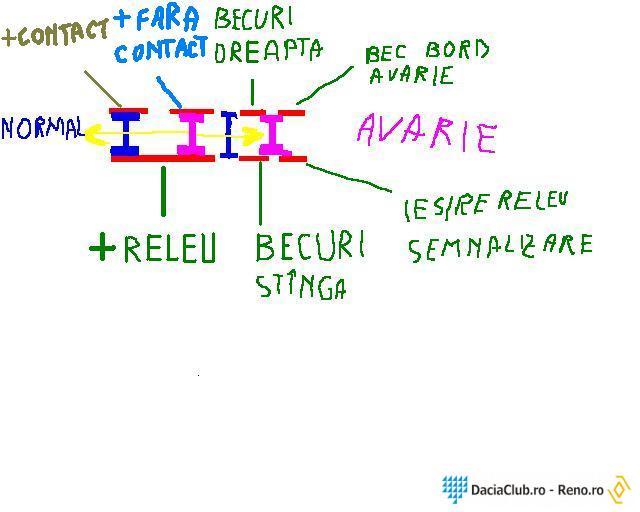 +CONTACT
+FARA
CONTACT
BECURI
DREAPTA
BEC BORD
AVARIE
NORMAL
AVARIE
IESIRE RELEU
SEMNALIZARE
+RELEU
BECURI
STÎNGA
DaciaClub.ro - Reno.ro